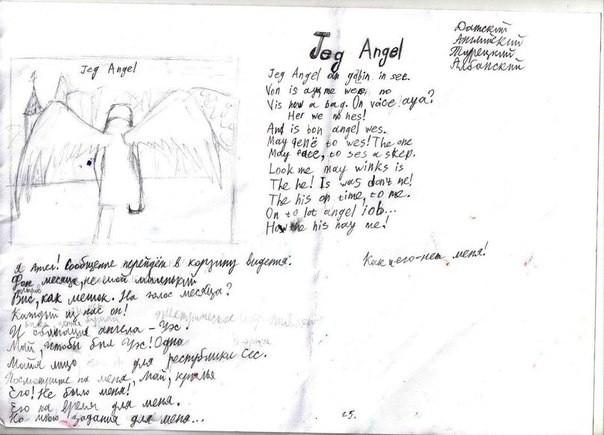 Jeg Angel
Jeg Angel
Датский
Английский
Турецкий
Албанский
Jeg Angel an gdbin in see.
Von is ayme wes no
Vis how a bag. On voice aya?
Her we no hes!
And is bon angel wes.
May gene to wes! The one
May face, to ses a skep.
Look me may winks is
The he! Is was don't he!
The his on time, to me.
On to lot angel job...
How the his nay me!
Я Ангел! Сообщение перейдён в корзину видетя.
Фон месяца, не мой маленький
Вис, как мешок. На голос месяца?
Каждый из нас он!
И ангела - Уж.
Май, чтобы был Уж! Одна
Майя лицо для республики Сес.
Посмотрите на меня, май, крылья
Его! Не было меня!
Его на время для меня.
На задания для меня...
Как его-нет меня!